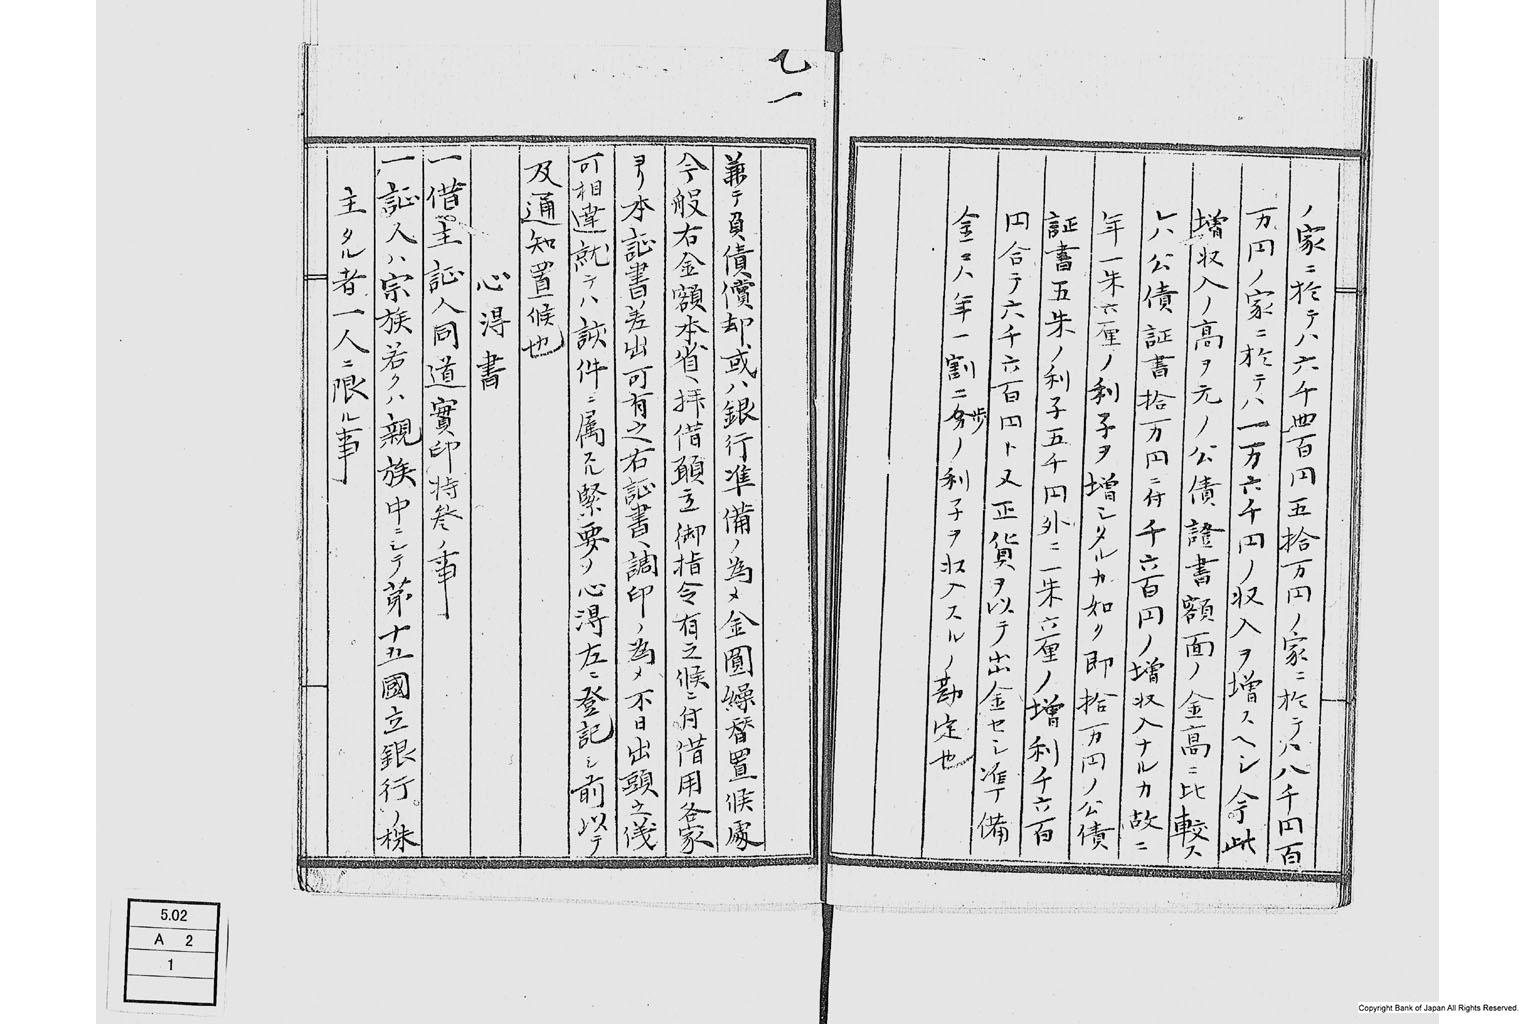 ノ家ニ於テハ六千四百円五拾万円ノ家ニ於テハ八千円百
万円ノ家ニ於テハ一万六千円ノ収入ヲ増スヘシ今此
増収入ノ高ヲ元ノ公債證書額面ノ金高ニ比較ス
レハ公債証書拾万円ニ付千六百円ノ増収入ナルカ故ニ
年一朱六厘ノ利子ヲ増シタルカ如ク即拾万円ノ公債
証書五朱ノ利子五千円外ニ一朱六厘ノ増利千六百
円合テ六千六百円ト又正貨ヲ以テ出金セシ準備
金ニハ年一割二歩ノ利子ヲ収入スルノ勘定也
乙一
兼テ負債償却或ハ銀行準備ノ為メ金圓繰替置候處
今般右金額本省ヘ拝借願立御指令有之候ニ付借用各家
ヨリ本証書差出可有之右証書ヘ調印ノ為メ不日出頭之儀
可相達就テハ該件ニ属シ緊要ノ心得左ニ登記シ前以テ
及通知置候也
心得書
一借主証人同道實印持参ノ事
一証人ハ宗族若クハ親族中ニシテ第十五國立銀行ノ株
主タル者一人ニ限ル事
5.02
A 2
1
Copyright Bank of Japan All Rights Reserved.